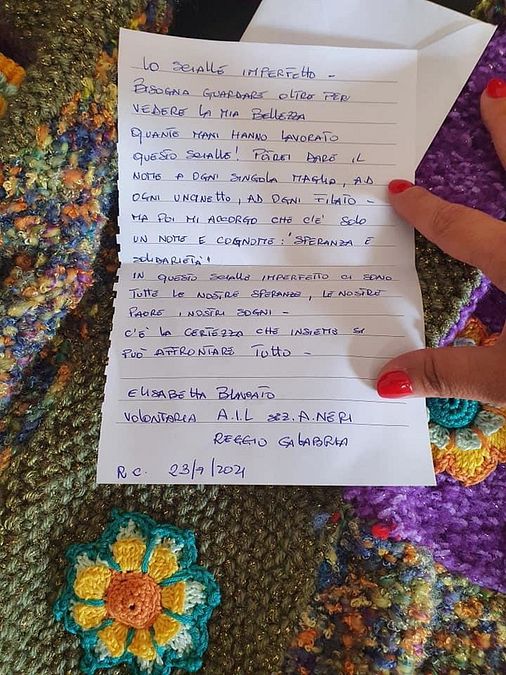 LO SCIALLE IMPERFETTO -
BISOGNA GUARDARE OLTRE PER
VEDERE LA MIA BELLEZZA
QUANTE MANI HANNO LAVORATO
QUESTO SCIALLE! POTREI DARE IL
NOME A OGNI SINGOLA MAGLIA, AD
OGNI UNCINETTO, AD OGNI FILATO -
MA POI MI ACCORGO CHE C'È SOLO
UN NOME E COGNOME: "SPERANZA E
SOLIDARIETÀ!
IN QUESTO SCIALLE IMPERFETTO CI SONO
TUTTE LE NOSTRE SPERANZE, LE NOSTRE
PAURE I NOSTRI SOGNI -
C'È LA CERTEZZA CHE INSIEME SI
PUÒ AFFRONTARE TUTTO -
ELISABETTA
VOLONTARIA A.I.L SEZ. A. NERI
REGGIO CALABRIA
R C. 23/9/2021